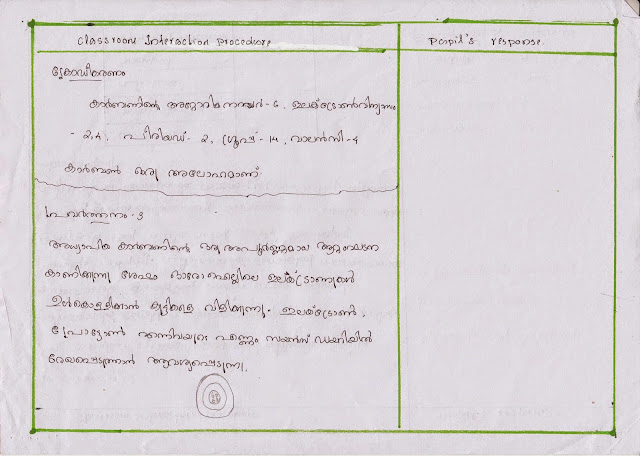 Classroom Interaction Procedure
Pupil's response.
ക്രോഡീകരണം
കാർബണിന്റെ അറ്റോമിക നമ്പർ - 6, ഇലക്ട്രോൺവിന്യാസം
- 2,4, പീരിയഡ് - 2, ഗ്രൂപ്പ് - 14, വാലൻസി - 4
കാർബൺ ഒരു അലോഹമാണ്.
പ്രവർത്തനം - 3
അധ്യാപിക കാർബണിന്റെ ഒരു അപൂർണ്ണമായ ആറ്റംഘടന
കാണിക്കുന്നു ശേഷം ഓരോ ഷെല്ലിലെ ഇലക്ട്രോണുകൾ
ഉൾകൊള്ളിക്കാൻ കുട്ടികളെ വിളിക്കുന്നു. ഇലക്ട്രോൺ,
പ്രോട്ടോൺ എന്നിവയുടെ എണ്ണം സയൻസ് ഡയറിയിൽ
രേഖപ്പെടുത്താൻ ആവശ്യപ്പെടുന്നു.